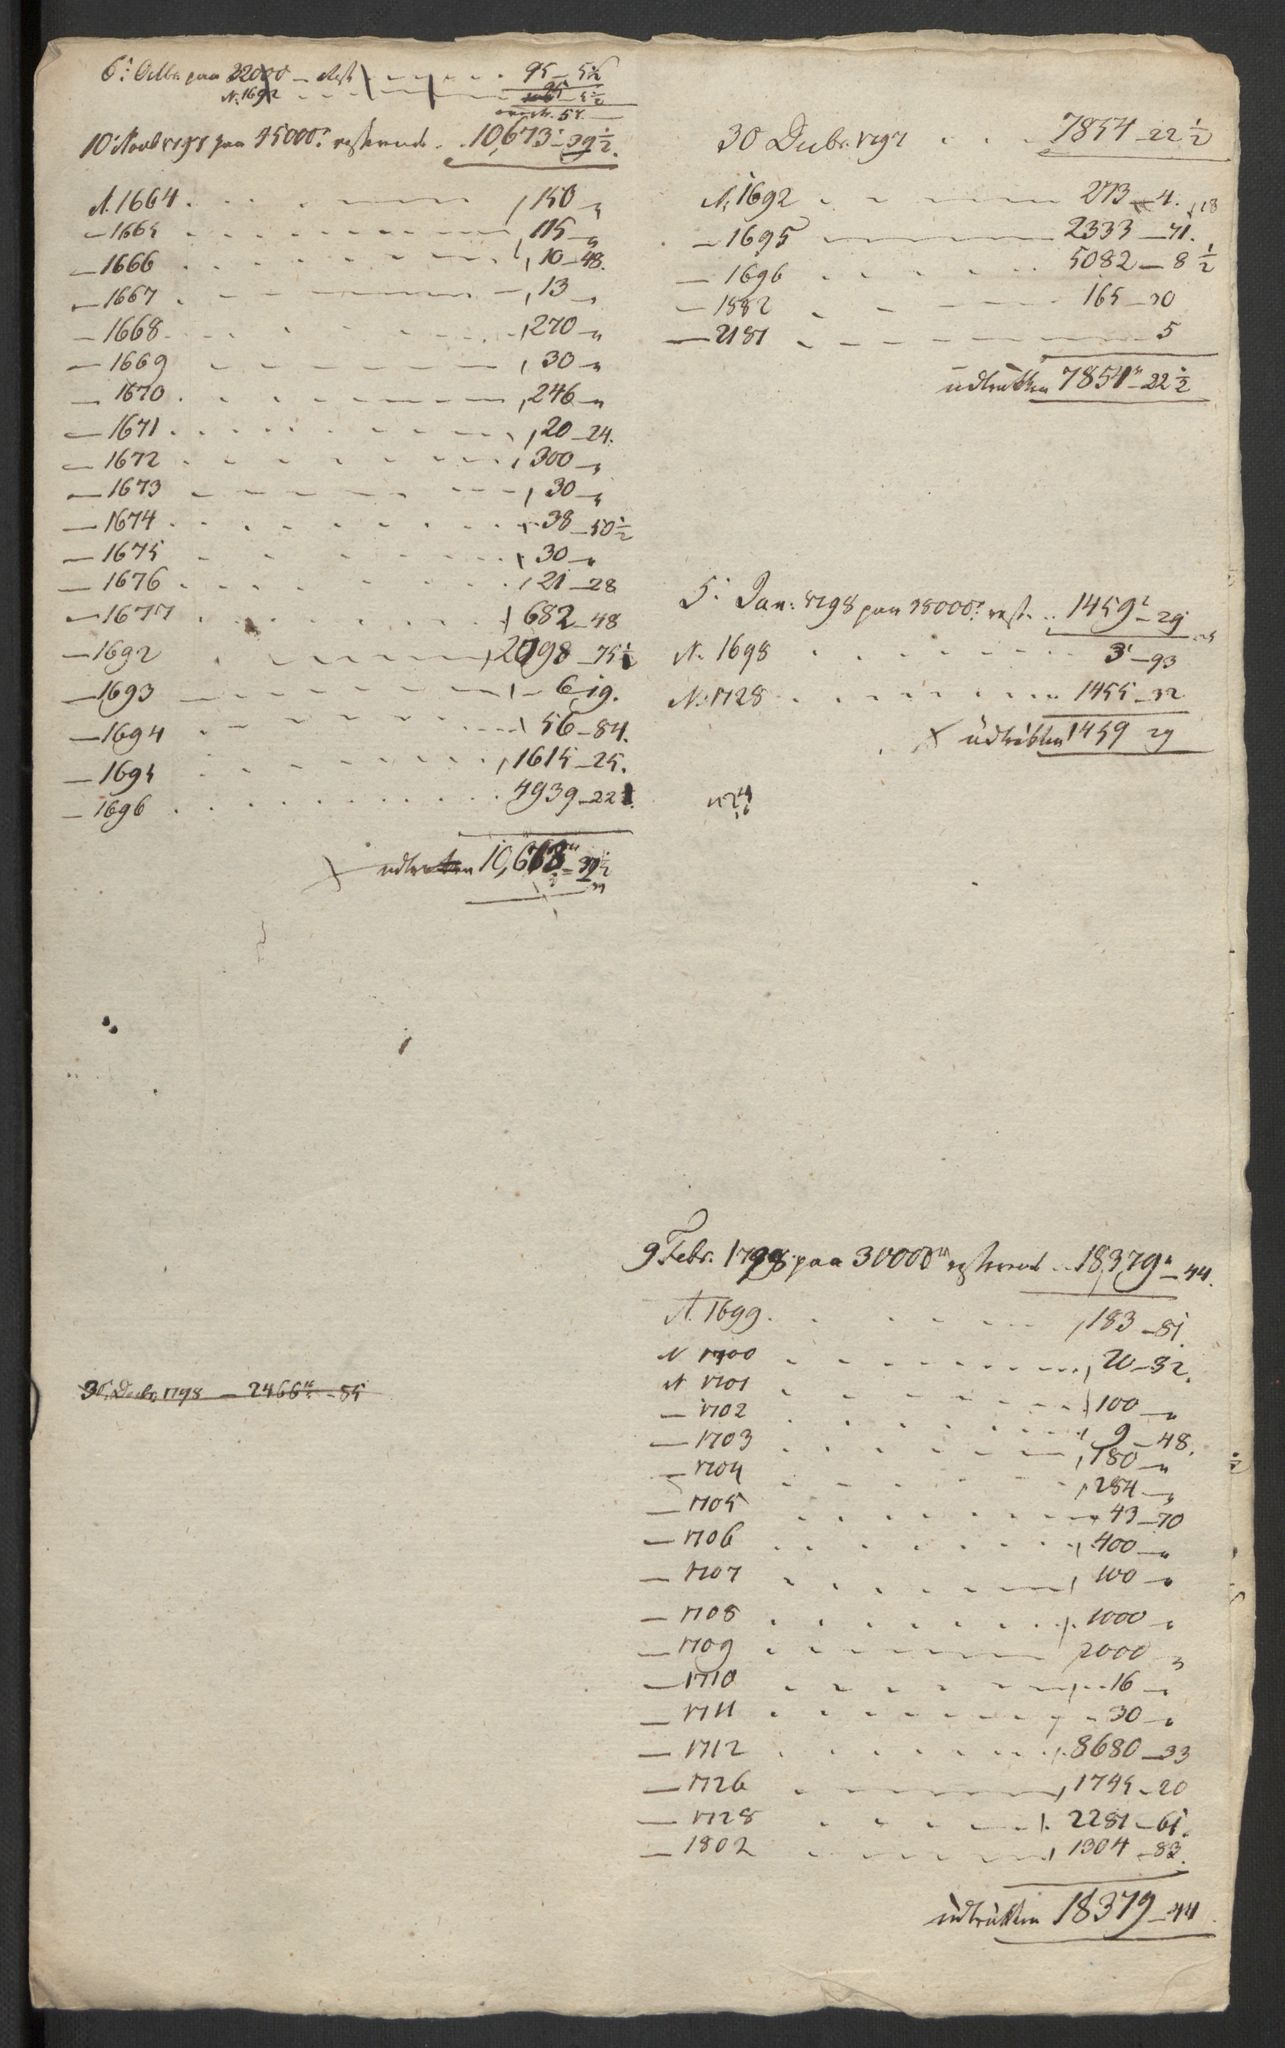 6: Octbr. paa 22000 – Rest 95 – 5½
N. 1692 95 – 5½
10 Novbr 1797 paa 45000 resterende . . 10,673 – 39½.
N. 1664 . . . 150 –
– 1665 . . . 115 –
– 1666 . . . 10 – 48.
– 1667 . . . 13 –
– 1668 . . . 270 –
– 1669 . . . 30 –
– 1670 . . . 246 –
– 1671 . . . 20 – 24.
– 1672 . . . 300 –
– 1673 . . . 30 –
– 1674 . . . 38 – 50½
– 1675 . . . 30 –
– 1676 . . . 21 – 28
– 1677 . . . 682 – 48
– 1692 . . . 2098 – 75½
– 1693 . . . 6 – 19.
– 1694 . . . 56 – 84.
– 1695 . . . 1615 – 25.
– 1696 . . . 4939 – 22
udtrukken 10,673 – 39½
30 Decbr 1798 – 2466 – 85
30 Decbr. 1797 . . . 7854 – 22½
N. 1692 . . . 273 – 4. 18
– 1695 . . . 2333 – 71.
– 1696 . . . 5082 – 8½
– 1882 . . . 165 – 30
– 2181 . . . 5
udtrukken 7854 – 22½
5: Jan: 1798 paa 35000 rest. . . 1459 – 29
N. 1698 . . . 3 – 93
N. 1728 . . . 1455 – 32
udtrukken 1459 29
9 Febr. 1798 paa 30000 resterende . . 18,379 – 44.
N. 1699 . . . 183 – 81.
N 1700 . . . 20 – 32.
N 1701 . . . 100 –
– 1702 . . . 9 – 48.
– 1703 . . . 180 –
– 1704 . . . 284 –
– 1705 . . . 43 – 70
– 1706 . . . 400 –
– 1707 . . . 100 –
– 1708 . . . 1000 –
– 1709 . . . 2000
– 1710 . . . 16 –
– 1711 . . . 30 –
– 1712 . . . 8680 – 33
– 1726 . . . 1745 – 20
– 1728 . . . 2281 – 61.
– 1802 . . . 1304 – 83.
udtrukken 18379 – 44.